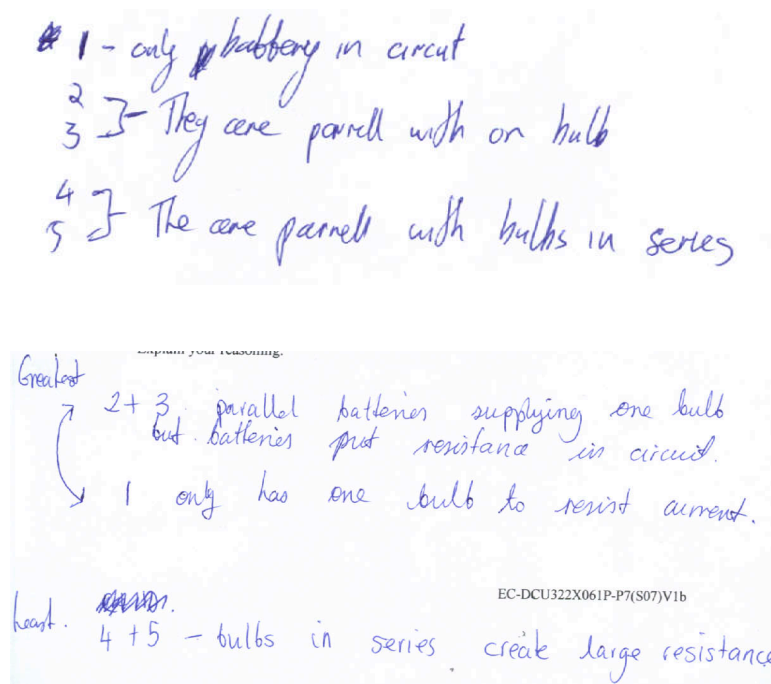 1 - only battery in circut
2
3 } - They are parrell with on bulb
4
5 } - The are parrell with bulbs in series
Explain your reasoning.
Greatest
2+3 parallel batteries supplying one bulb
but batteries put resistance in circuit.
1 only has one bulb to resist current.
EC-DCU322X061P-P7(S07)V1b
Least.
4+5 - bulbs in series create large resistance